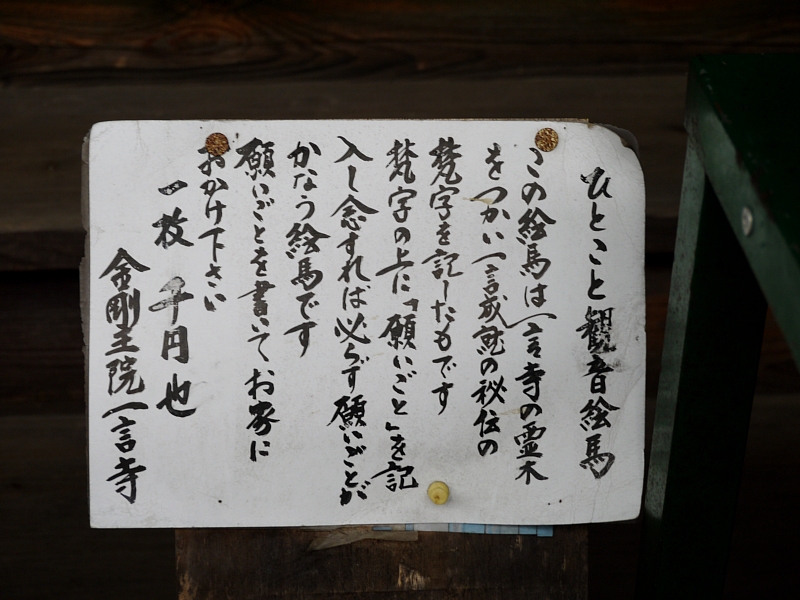 ひとこと観音絵馬
この絵馬は一言寺の霊木
をつかい一言成就の秘伝の
梵字を記したものです
梵字の上に「願いごと」を記
入し念ずれば必らず願いごとが
かなう絵馬です
願いごとを書いてお家に
おかけ下さい
一枚 千円也
金剛王院一言寺